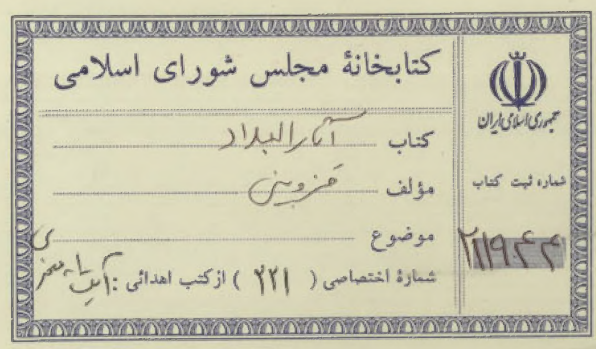 کتابخانهٔ مجلس شورای اسلامی
کتاب آثار البلاد
مؤلف قزوینی
موضوع
شمارهٔ اختصاصی ( ۲۲۱ ) از کتب اهدائی :
جمهوری اسلامی ایران
شماره ثبت کتاب
۲۱۱۹۴۴